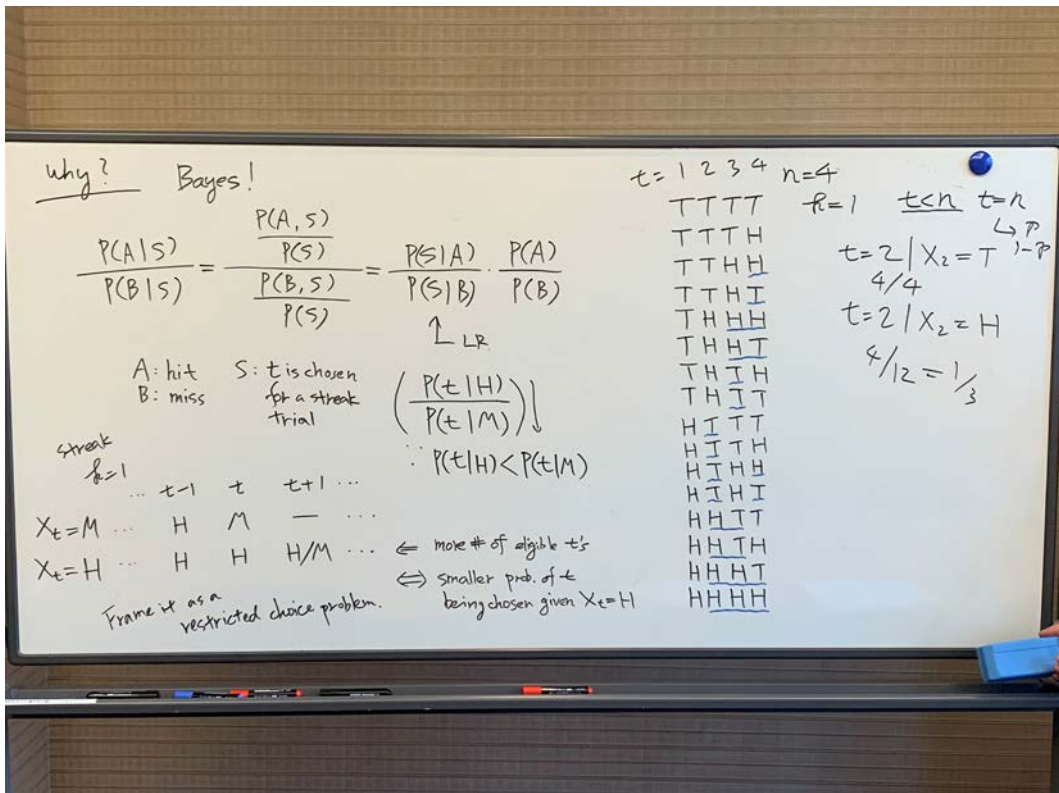 why? Bayes!
P(A|S) / P(B|S) = (P(A,S)/P(S)) / (P(B,S)/P(S)) = P(S|A)/P(S|B) · P(A)/P(B)
↑ LR
A: hit S: t is chosen
B: miss for a streak
trial
(P(t|H) / P(t|M)) ↓
∵ P(t|H) < P(t|M)
streak
k=1
... t-1 t t+1 ...
X_t=M ... H M — ...
X_t=H ... H H H/M ... ⇐ more # of eligible t's
⇔ smaller prob. of t
being chosen given X_t=H
Frame it as a
restricted choice problem.
t= 1 2 3 4 n=4
TTTT
TTTH
TTHH
TTHT
THHH
THHT
THTH
THTT
HTTT
HTTH
HTHH
HTHT
HHTT
HHTH
HHHT
HHHH
k=1 t<n t=n
↳ p
1-p
t=2 | X_2 = T
4/4
t=2 | X_2 = H
4/12 = 1/3